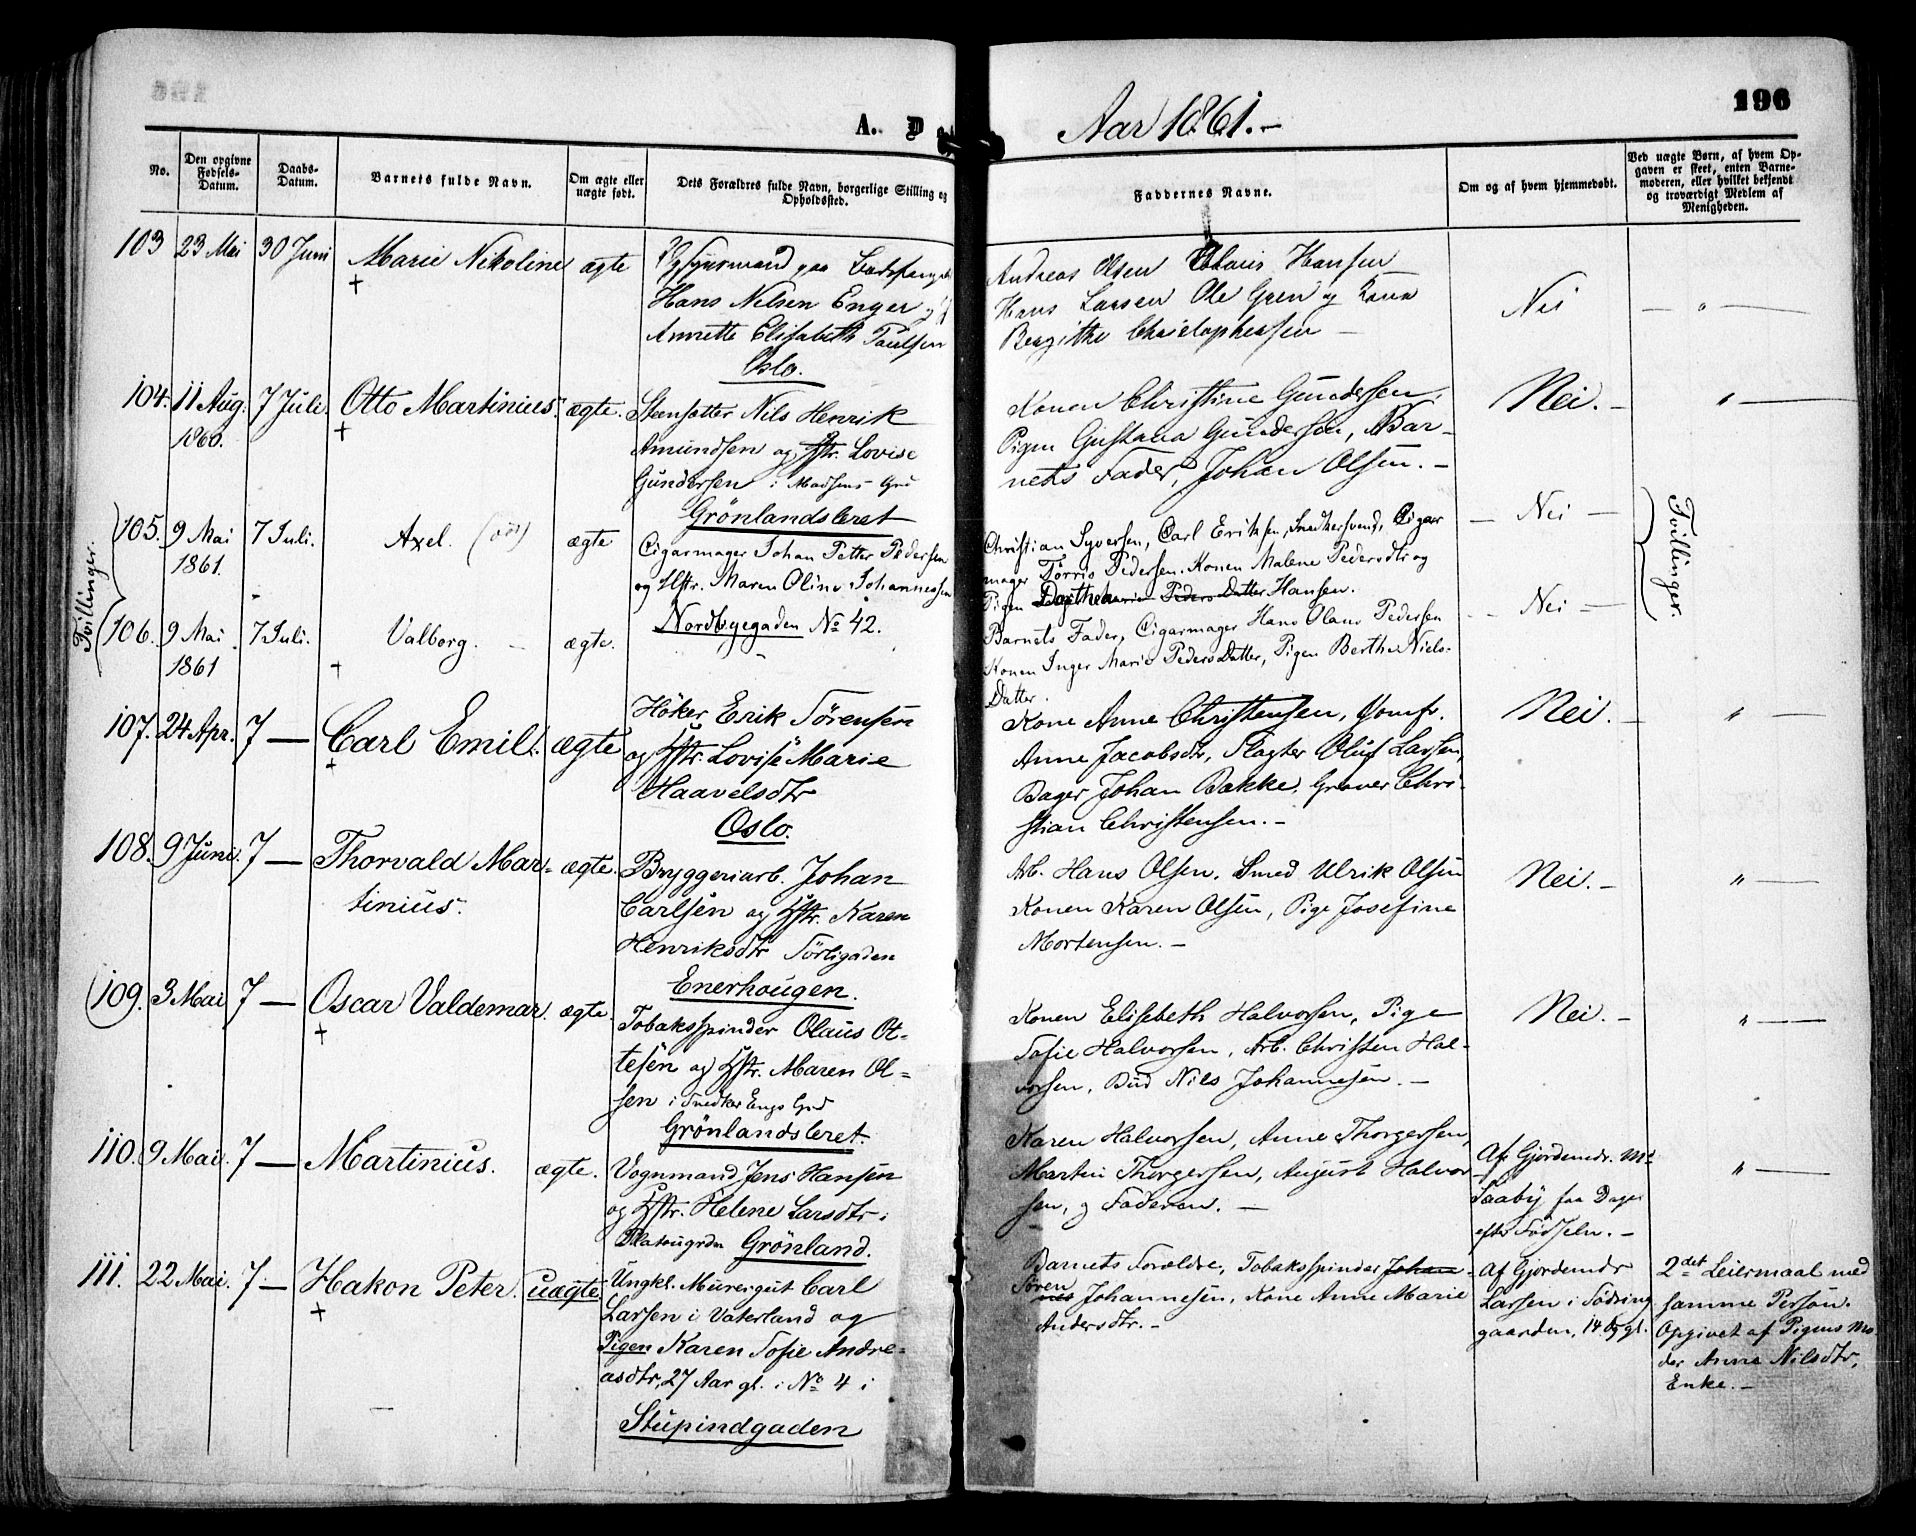 196
A. D
Aar 1861.-
No.
Den opgivne Fødsels-Datum.
Daabs-Datum.
Barnets fulde Navn.
Om ægte eller uægte født.
Dets Forældres fulde Navn, borgerlige Stilling og Opholdssted.
Faddernes Navne.
Om og af hvem hjemmedøbt.
Ved uægte Børn, af hvem Opgaven er skeet, enten Barnemoderen, eller hvilket bekjendt og troværdigt Medlem af Menigheden.
103 23 Mai 30 Juni Marie Nikoline ægte
+
Hans Nelsen Enger
Annette Elisabeth Paulsen
Oslo.
Andreas Olsen Hansen
Hans Larsen Ole Gren og Kona
Bergithe Christophersen —
Nei
— " —
104. 11 Aug. 1860. 7 Juli. Otto Martinius. ægte.
+
Steensætter Nils Henrik
Amundsen og Hstr. Lovise
Gundersen i Madsens Grd
Grönlandsleret
Konen Christine Gundersen,
Pigen Gustava Gundersen, Bar-
nets Fader, Johan Olsen. -
Nei. -
" —
Tvillinger.
105. 9 Mai 1861. 7 Juli. Axel. ægte
Cigarmager Johan Petter Pedersen
og Hstr. Maren Oline Johannessen
Nordbygaden No 42.
Christian Syversen, Carl Eriksen, Snedkersvend, Cigar
mager Tørris Pedersen. Konen Malene Pedersdtr og
Pigen Dorthea Peders Datter Hansen.
— Nei —
Tvillinger.
106. 9 Mai 1861 7 Juli. Valborg. ægte.
+
Barnets Fader, Cigarmager Hans Olaus Pedersen
Konen Inger Marie Peders Datter, Pigen Berthe Niels-
Datter.
- Nei —
107. 24 Apr. 7 — Carl Emil. ægte
+
Höker Erik Sörensen
og Hstr. Lovise Marie
Haavelsdtr
Oslo.
Kone Anne Christensen, Jomfr.
Anne Jacobsdtr, Slagter Oluf Larsen,
Bager Johan Bakke, Graver Chri-
stian Christensen. -
Nei. -
" —
108. 9 Juni. 7 — Thorvald Mar- ægte.
tinius.
Bryggeriarb. Johan
Carlsen og Hstr. Karen
Henriksdtr Törligaden
Enerhougen.
Arb. Hans Olsen, Smed Ulrik Olsen
Konen Karen Olsen, Pige Josefine
Mortensen. -
Nei. -
" —
109. 3 Mai 7 — Oscar Valdemar. ægte.
+
Tobaksspinder Olaus Ot-
tesen og Hstr. Maren Ol=
sen i Snedker Engs Grd
Grönlandsleret.
Konen Elisebeth Halvorsen, Pige
Sofie Halvorsen, Arb. Christen Hal-
vorsen, Bud Nils Johannesen. -
Nei. -
" —
110. 9 Mai. 7 — Martinius. ægte.
Vognmand Jens Hansen
og Hstr. Helene Larsdtr i
Platougrdn Grönland.
Karen Halvorsen, Anne Thorgersen,
Martin Thorgersen, August Halvor-
sen, og Faderen. —
Af Gjordemdr. Md
Saaby faa Dage
efter Födseln. -
" —
111. 22 Mai. 7 — Hakon Peter. uægte
+
Ungkl. Murersvt Carl
Larsen i Vaterland og
Pigen Karen Sofie Andre-
asdtr, 27 Aar gl. i No 4 i
Stupindgaden
Barnets Forældre, Tobaksspinder Johan-
Sören nes Johannesen, Kone Anne Marie
Andersdtr. -
Af Gjordemdr
Larsen i Södring
gaarden, 14 Dg gl.
2det Leiermaal med
samme Person.
Opgivet af Pigens Mo-
der Anne Nilsdtr,
Enke. -